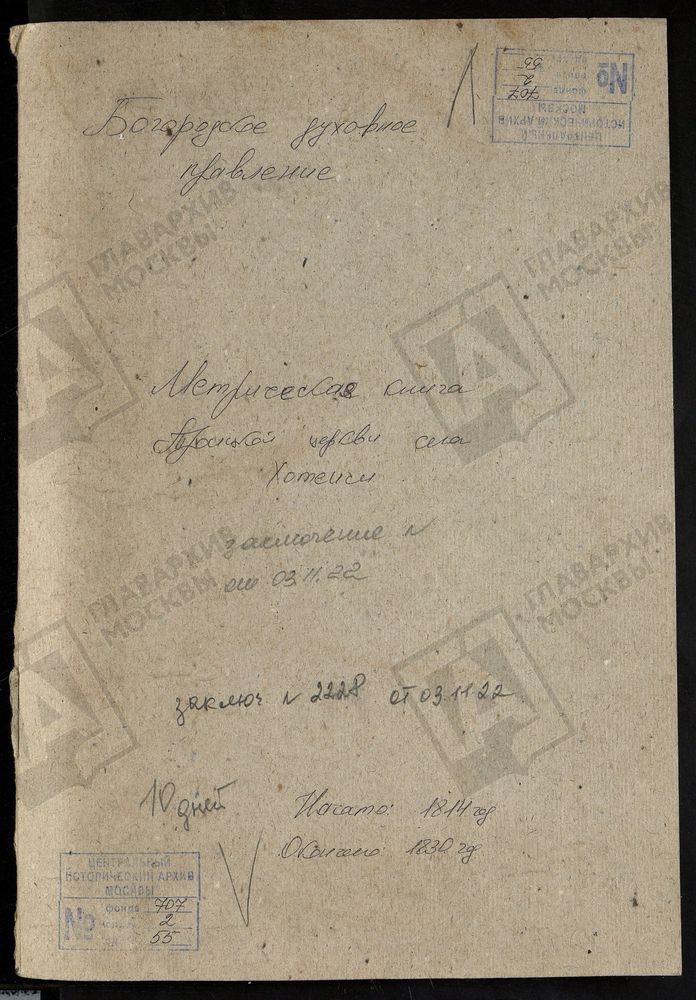 №
707
2
55
ЦЕНТРАЛЬНЫЙ
ИСТОРИЧЕСКИЙ АРХИВ
МОСКВЫ
Богородское духовное
правление
ГЛАВАРХИВ
МОСКВЫ
ГЛАВАРХИВ
МОСКВЫ
Метрическая книга
Троицкой церкви села
Хотеичи
заключение №
от 03.11.22
ГЛАВАРХИВ
МОСКВЫ
ГЛАВАРХИВ
МОСКВЫ
заключ № 2228 от 03.11.22
10 дней
Начато: 1814 год
Окончено: 1830 год
ЦЕНТРАЛЬНЫЙ
ИСТОРИЧЕСКИЙ АРХИВ
МОСКВЫ
№ фонда 707
2
55